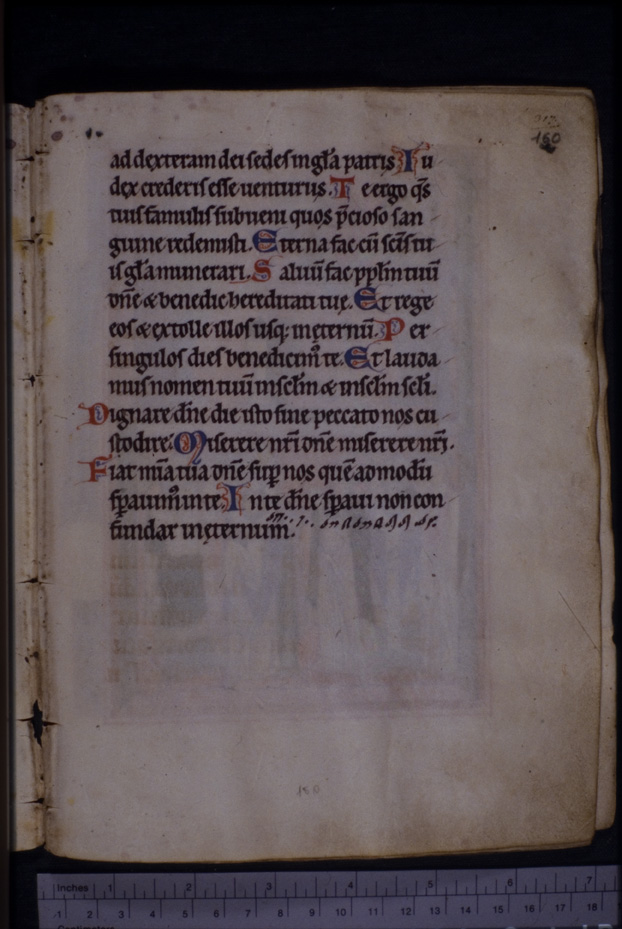 160
ad dexteram dei sedes in gl̄a patris. Iu
dex crederis esse uenturus. Te ergo q̄s
tuis famulis subueni quos p̄cioso san
guine redemisti. Eterna fac cū sc̄is tu
is gl̄a munerari. Saluū fac pp̄lm tuū
dn̄e & benedic hereditati tuę. Et rege
eos & extolle illos usq; in ęternū. Per
singulos dies benedicim᷒ te. Et lauda
mus nomen tuū in sc̄lm & in sc̄lm sc̄li.
Dignare dn̄e die isto sine peccato nos cu
stodire. Miserere nr̄i dn̄e miserere nr̄i.
Fiat mīa tua dn̄e sup̄ nos quē admodū
sp̄auim᷒ in te. In te dn̄e sp̄aui non con
fundar in ęternum.
160
Inches 1 2 3 4 5 6 7
1 2 3 4 5 6 7 8 9 10 11 12 13 14 15 16 17 18
Centimetres